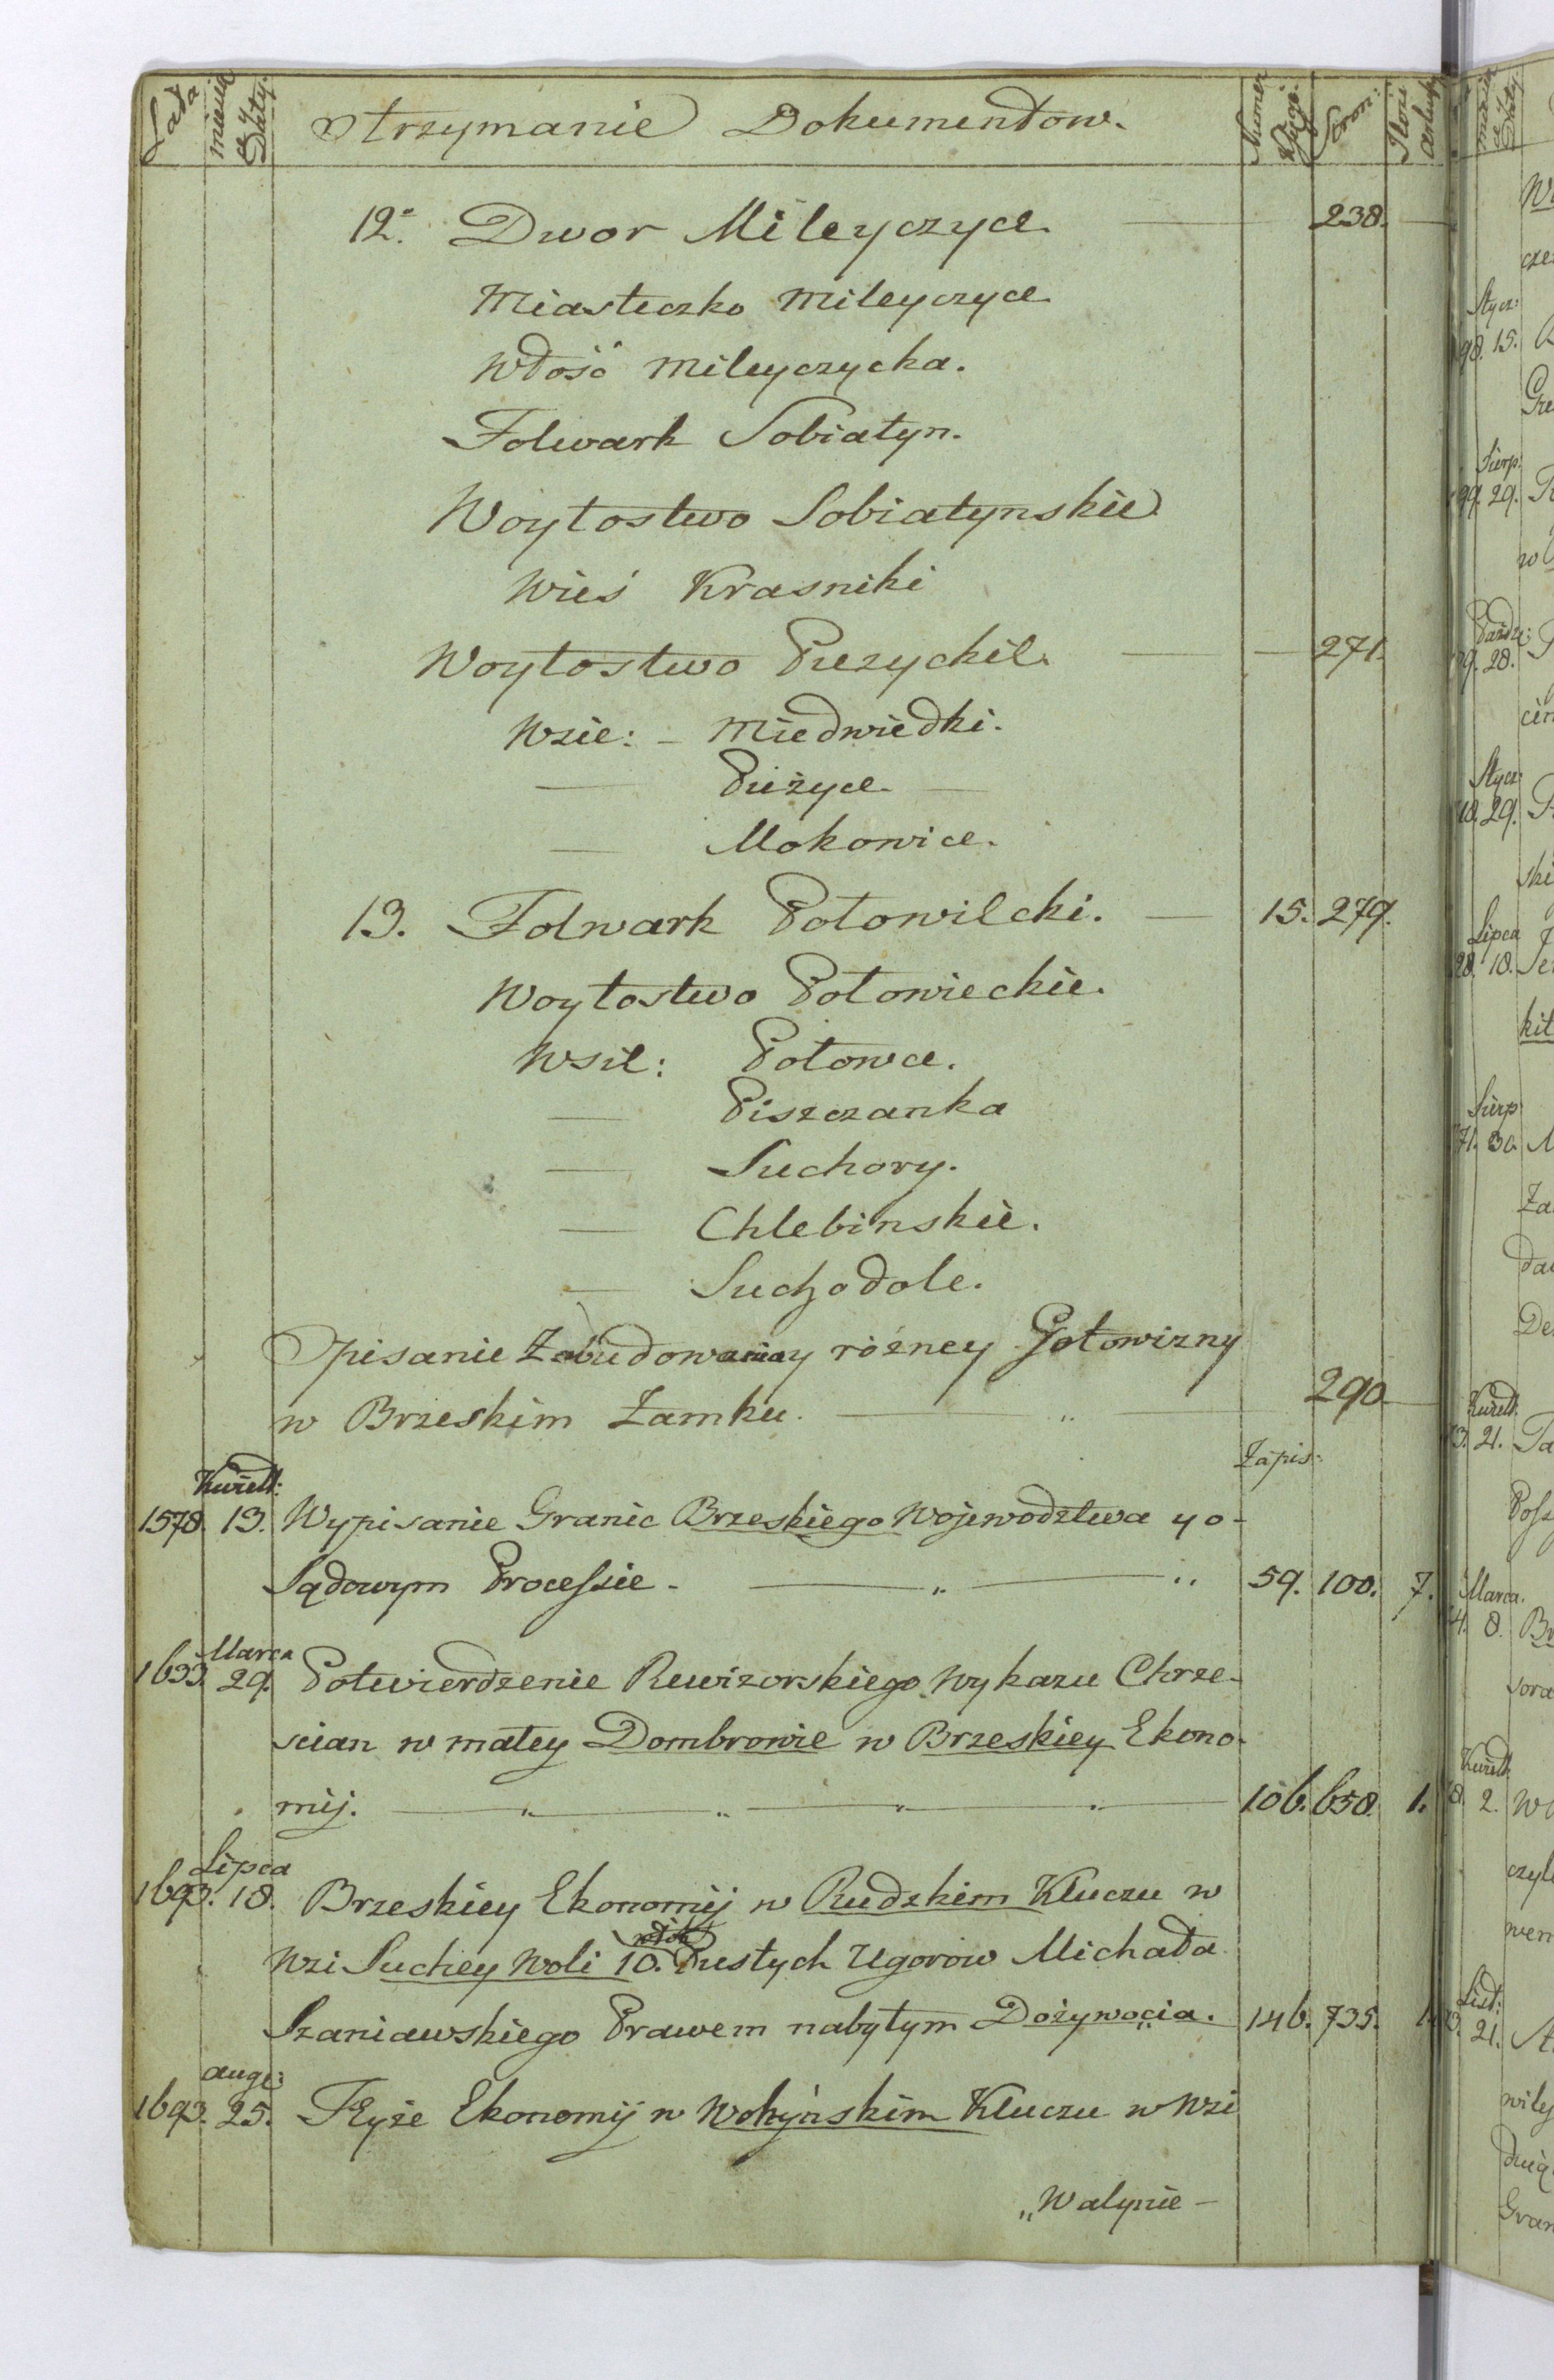 Lata miesiąca Daty. Otrzymanie Dokumentow. Numer Xięgi. Stron: Ilość arkusz
12. Dwor Mileyczyce. 238.
Miasteczko Mileyczyce
Włość Mileyczycka.
Folwark Sobiatyn.
Woytostwo Sobiatynskie
Wieś Krasniki
Woytostwo Puzyckie. 271.
Wsie: - Miedwiedki.
— Pużyce.
— Mokowice.
13. Folwark Połowiecki. 15. 279.
Woytostwo Połowieckie.
Wsie: Połowce.
— Piszczanka
— Suchory.
— Chlebinskie.
— Suchodole.
Opisanie Zabudowania y rożney Gotowizny
w Brzeskim Zamku. 290
Zapis:
Kwiett:
1578. 13. Wypisanie Granic Brzeskiego Wojewodztwa y o-
Sądowym Processie. 59. 100. 7.
Marca
1633. 29. Potwierdzenie Rewizorskiego wykazu Chrze-
scian w małey Dombrowie w Brzeskiey Ekono-
mij. 106. 658. 1.
Lipca
1693. 18. Brzeskiey Ekonomij w Rudzkim Kluczu w
włok
Wsi Suchey Woli 10. Pustych Ugorow Michała
Szaniawskiego Prawem nabytym Dożywocia. 146. 735. 1.
aug:
1693. 25. Teyże Ekonomij w Wohyńskim Kluczu w Wsi
„Walynie -